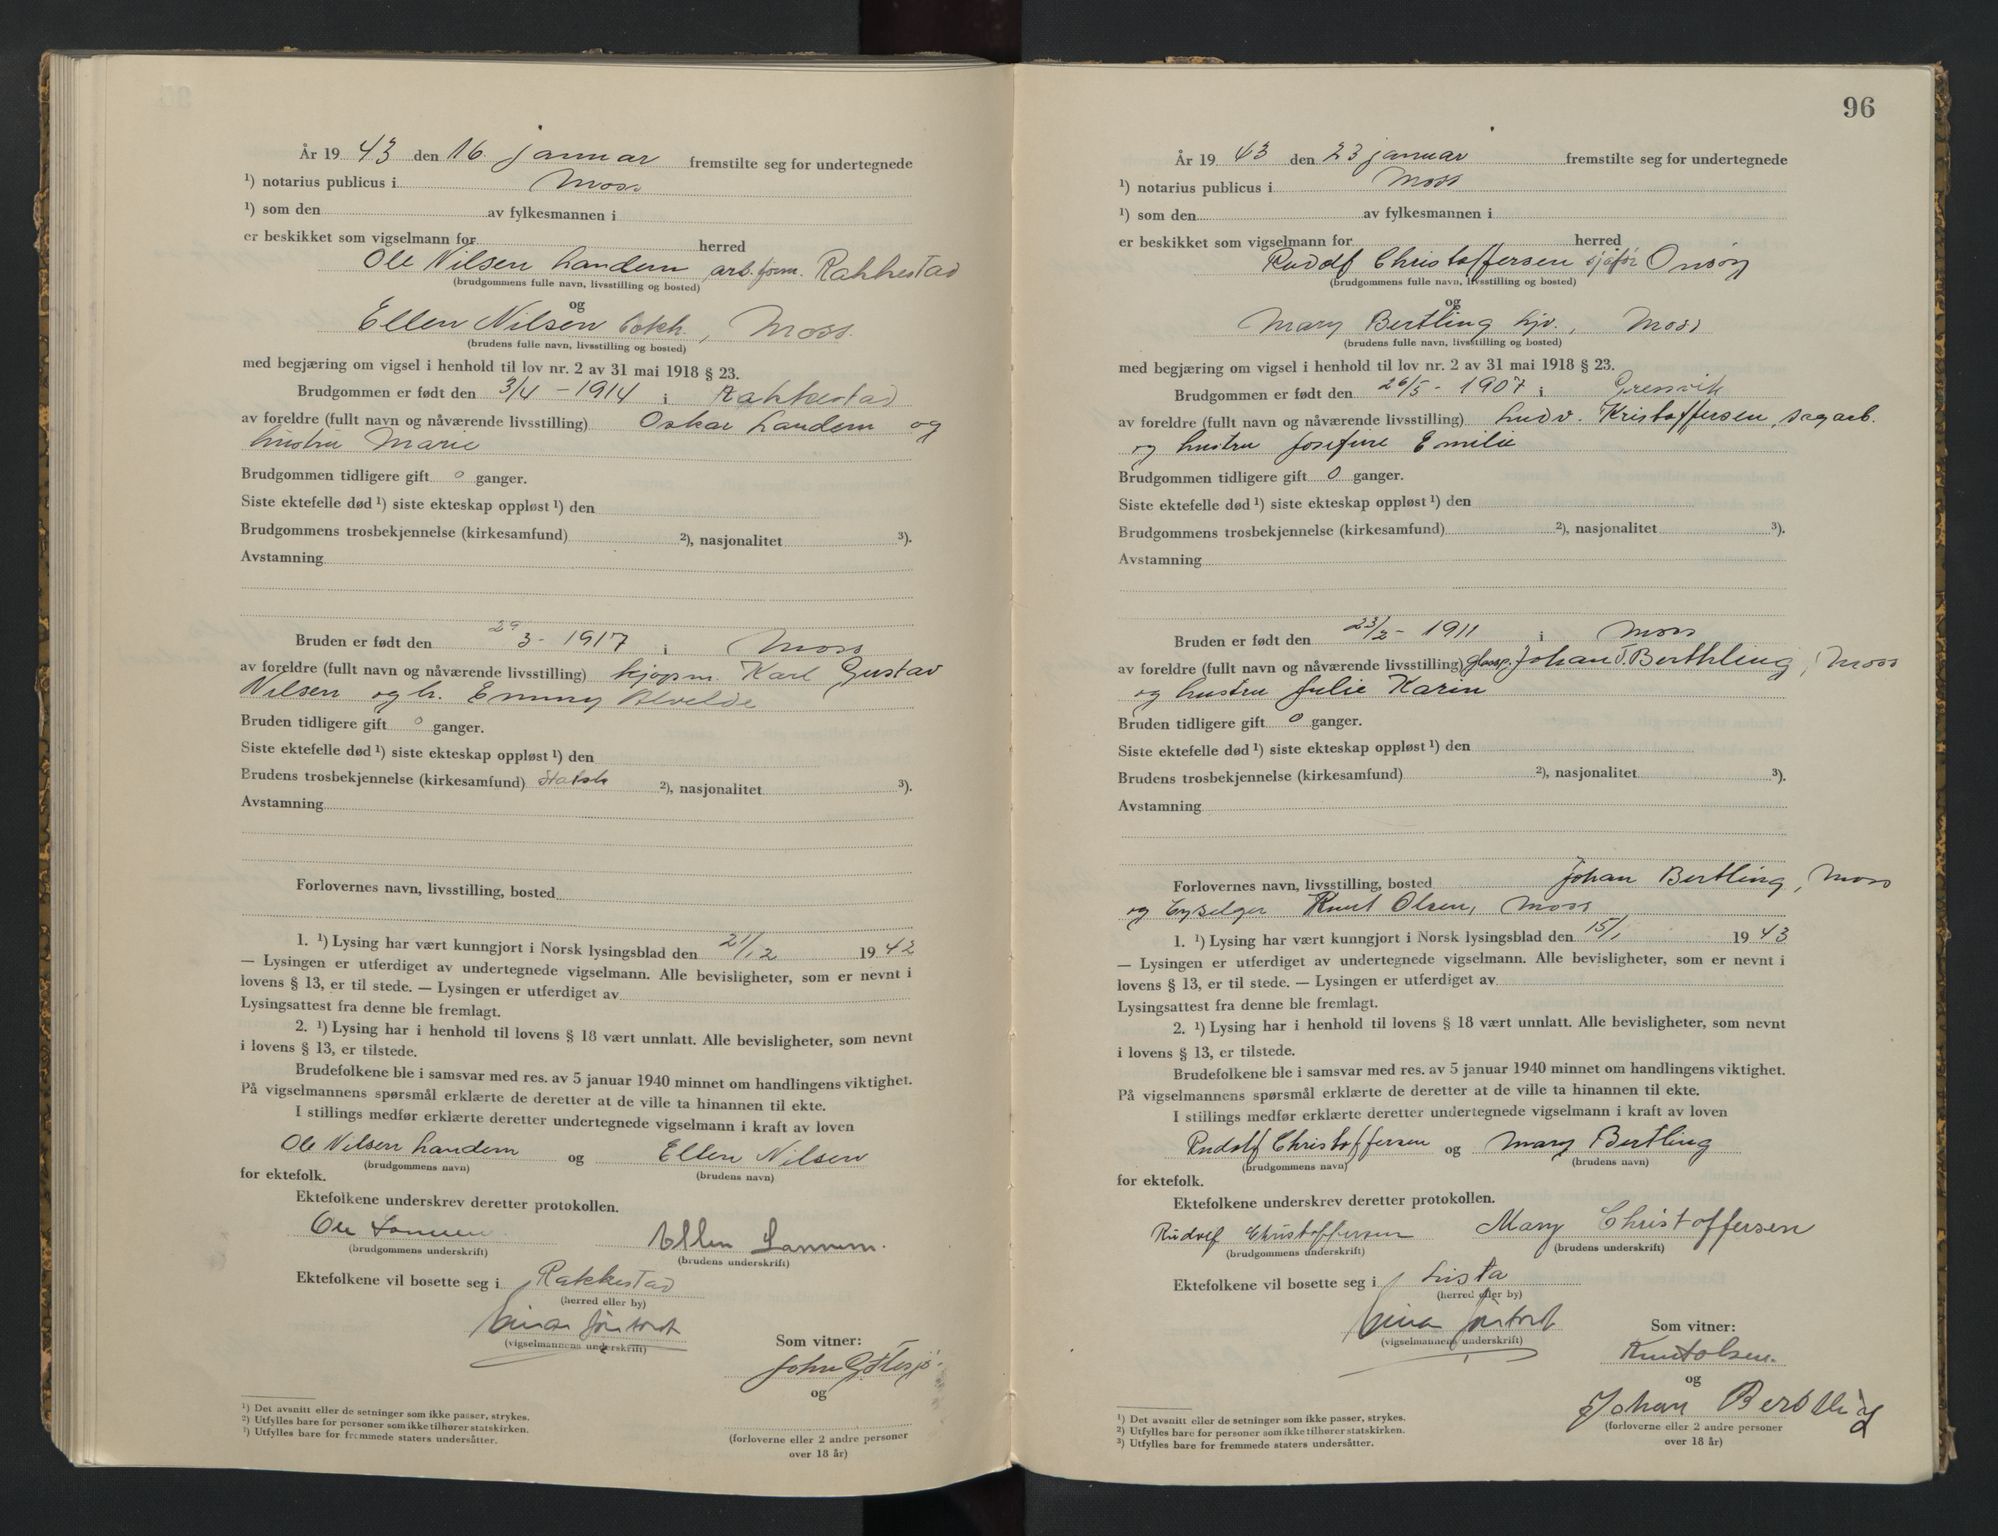 År 19 43 den 16. januar fremstilte seg for undertegnede
¹) notarius publicus i Moss
¹) som den av fylkesmannen i
er beskikket som vigselmann for herred
Ole Nilsen Landem, arb.form. Rakkestad
(brudgommens fulle navn, livsstilling og bosted)
og
Ellen Nilsen, Moss.
(brudens fulle navn, livsstilling og bosted)
med begjæring om vigsel i henhold til lov nr. 2 av 31 mai 1918 § 23.
Brudgommen er født den 3/4 - 1914 i Rakkestad
av foreldre (fullt navn og nåværende livsstilling) Oskar Landem og
hustru Marie
Brudgommen tidligere gift 0 ganger.
Siste ektefelle død ¹) siste ekteskap oppløst ¹) den
Brudgommens trosbekjennelse (kirkesamfund) ²), nasjonalitet ³).
Avstamning
Bruden er født den 29/3 - 1917 i Moss
av foreldre (fullt navn og nåværende livsstilling) kjøpm. Karl Gustav
Nilsen og h. Emmy Alvelde
Bruden tidligere gift 0 ganger.
Siste ektefelle død ¹) siste ekteskap oppløst ¹) den
Brudens trosbekjennelse (kirkesamfund) ²), nasjonalitet ³).
Avstamning
Forlovernes navn, livsstilling, bosted
1. ¹) Lysing har vært kunngjort i Norsk lysingsblad den 21/12 19 42
— Lysingen er utferdiget av undertegnede vigselmann. Alle bevisligheter, som er nevnt i
lovens § 13, er til stede. — Lysingen er utferdiget av
Lysingsattest fra denne ble fremlagt.
2. ¹) Lysing har i henhold til lovens § 18 vært unnlatt. Alle bevisligheter, som nevnt
i lovens § 13, er tilstede.
Brudefolkene ble i samsvar med res. av 5 januar 1940 minnet om handlingens viktighet.
På vigselmannens spørsmål erklærte de deretter at de ville ta hinannen til ekte.
I stillings medfør erklærte deretter undertegnede vigselmann i kraft av loven
Ole Nilsen Landem og Ellen Nilsen
(brudgommens navn) (brudens navn)
for ektefolk.
Ektefolkene underskrev deretter protokollen.
Ole Ellen
(brudgommens underskrift) (brudens underskrift)
Ektefolkene vil bosette seg i Rakkestad
(herred eller by)
(vigselmannens underskrift)
Som vitner:
John
og
(forloverne eller 2 andre personer
over 18 år)
¹) Det avsnitt eller de setninger som ikke passer, strykes.
²) Utfylles bare for personer som ikke tilhører statskirken.
³) Utfylles bare for fremmede staters undersåtter.
96
År 19 43 den 23 januar fremstilte seg for undertegnede
¹) notarius publicus i Moss
¹) som den av fylkesmannen i
er beskikket som vigselmann for herred
Rudolf Christoffersen sjåfør Onsøy
(brudgommens fulle navn, livsstilling og bosted)
og
Mary Bertling hjv., Moss
(brudens fulle navn, livsstilling og bosted)
med begjæring om vigsel i henhold til lov nr. 2 av 31 mai 1918 § 23.
Brudgommen er født den 26/5 - 1907 i Gressvik
av foreldre (fullt navn og nåværende livsstilling) Ludv. Kristoffersen, sagarb.
og hustru Josefine Emilie
Brudgommen tidligere gift 0 ganger.
Siste ektefelle død ¹) siste ekteskap oppløst ¹) den
Brudgommens trosbekjennelse (kirkesamfund) ²), nasjonalitet ³).
Avstamning
Bruden er født den 23/2 - 1911 i Moss
av foreldre (fullt navn og nåværende livsstilling) Johan Berthling, Moss
og hustru Julie Karin
Bruden tidligere gift 0 ganger.
Siste ektefelle død ¹) siste ekteskap oppløst ¹) den
Brudens trosbekjennelse (kirkesamfund) ²), nasjonalitet ³).
Avstamning
Forlovernes navn, livsstilling, bosted Johan Bertling, Moss
og Knut Olsen, Moss
1. ¹) Lysing har vært kunngjort i Norsk lysingsblad den 15/1 19 43
— Lysingen er utferdiget av undertegnede vigselmann. Alle bevisligheter, som er nevnt i
lovens § 13, er til stede. — Lysingen er utferdiget av
Lysingsattest fra denne ble fremlagt.
2. ¹) Lysing har i henhold til lovens § 18 vært unnlatt. Alle bevisligheter, som nevnt
i lovens § 13, er tilstede.
Brudefolkene ble i samsvar med res. av 5 januar 1940 minnet om handlingens viktighet.
På vigselmannens spørsmål erklærte de deretter at de ville ta hinannen til ekte.
I stillings medfør erklærte deretter undertegnede vigselmann i kraft av loven
Rudolf Christoffersen og Mary Bertling
(brudgommens navn) (brudens navn)
for ektefolk.
Ektefolkene underskrev deretter protokollen.
Rudolf Christoffersen Mary Christoffersen
(brudgommens underskrift) (brudens underskrift)
Ektefolkene vil bosette seg i Lista
(herred eller by)
(vigselmannens underskrift)
Som vitner:
Knut Olsen.
og
Johan Bertling
(forloverne eller 2 andre personer
over 18 år)
¹) Det avsnitt eller de setninger som ikke passer, strykes.
²) Utfylles bare for personer som ikke tilhører statskirken.
³) Utfylles bare for fremmede staters undersåtter.